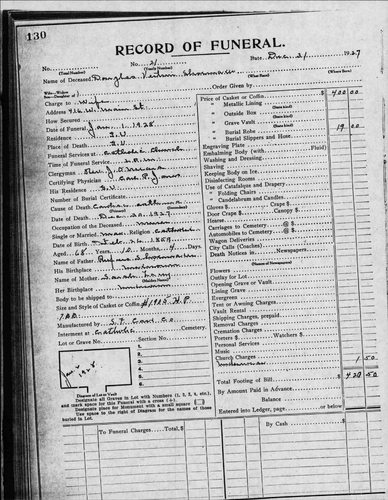 130
RECORD OF FUNERAL.
No. No. 21 Date, Dec. 21 1927
(Total Number) (Yearly Number)
Name of Deceased Douglas
(What Race) (Where Born)
Wife—Widow
Son—Daughter of
Order Given by
Charge to Wife
Address W. Main St
How Secured
Date of Funeral Jan. 1, 1928
Residence
Place of Death
Funeral Services at Catholic Church
Time of Funeral Service
Clergyman Rev.
Certifying Physician
His Residence
Number of Burial Certificate
Cause of Death
(Primary) (Secondary)
Date of Death Dec. 30, 1927
Occupation of the Deceased
Single or Married Religion Catholic
Date of Birth Feb. 26, 1859
Aged 68 Years, 10 Months, 4 Days
Name of Father
His Birthplace unknown
Name of Mother Sarah
(Maiden Name)
Her Birthplace unknown
Body to be shipped to
Size and Style of Casket or Coffin
Manufactured by Co
Interment at Catholic Cemetery.
Lot or Grave No. Section No.
1.
2.
3.
4.
5.
6.
Diagram of Lot or Vault
Designate all Graves in Lot with Numbers (1, 2, 3, 4, etc.),
and mark space for this Funeral with a cross (+).
Designate place for Monument with a small square
Use space to the right of Diagram for the names of those
buried in Lot.
Price of Casket or Coffin $ 400 00
" Metallic Lining
(State kind)
" Outside Box
(State kind)
" Grave Vault
(State kind)
" Burial Robe 19 00
(State kind)
" Burial Slippers and Hose
Engraving Plate
Embalming Body (with Fluid)
Washing and Dressing
Shaving
Keeping Body on Ice
Disinfecting Rooms
Use of Catafalque and Drapery
" Folding Chairs
" Candelabrum and Candles
Gloves $ Chairs $
Door Crape $ Canopy $
Hearse
Carriages to Cemetery @ $
Automobiles to Cemetery @ $
Wagon Deliveries
City Calls (Coaches)
Death Notices in Newspapers
(Names of Newspapers)
Flowers
Outlay for Lot
Opening Grave or Vault
Lining Grave
Evergreen
Tent or Awning Charges
Vault Rental
Shipping Charges, prepaid
Removal Charges
Cremation Charges
Porters $ Watchers $
Personal Services
Music
Church Charges
1 50
Total Footing of Bill $ 420 50
By Amount Paid in Advance
Balance
Entered into Ledger, page or below
To Funeral Charges Total, $
By Cash $